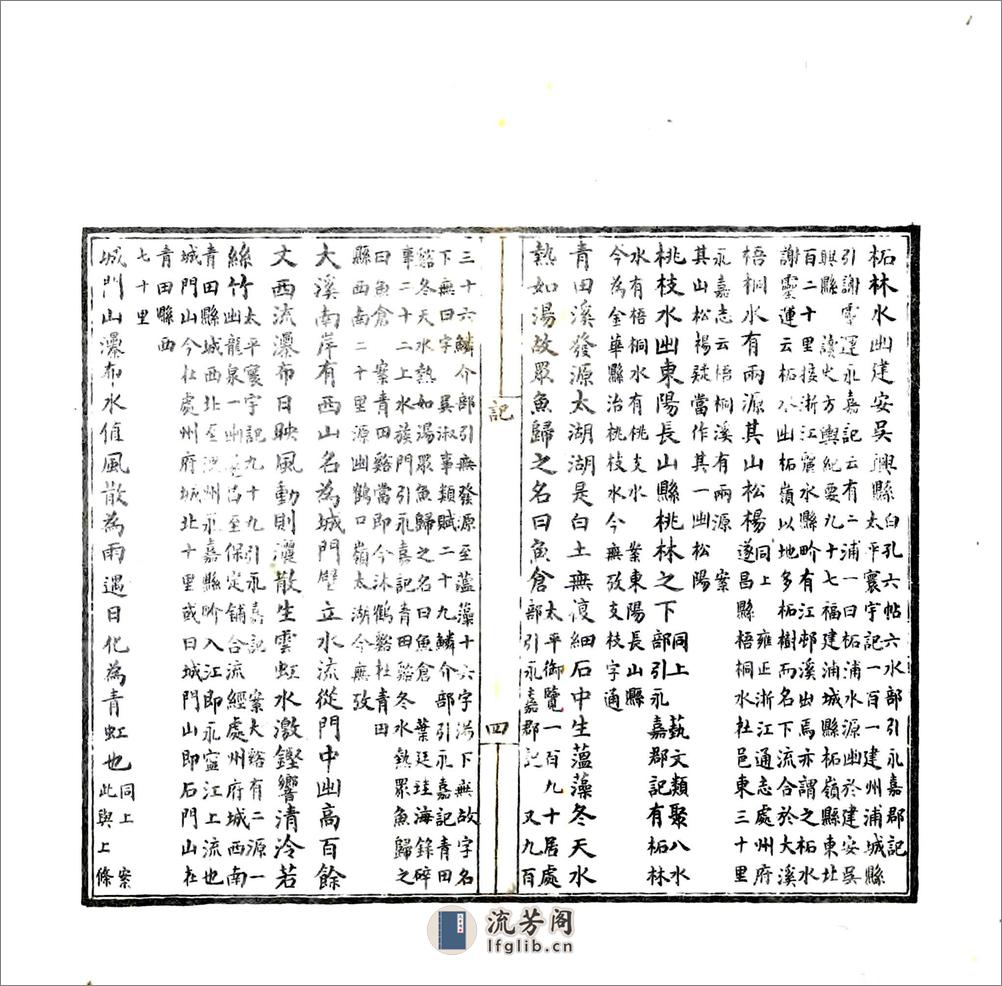 柘林水幽建安吳興縣白孔六帖六水部引永嘉郡記
太平寰宇記一百一建州浦城縣
引謝靈運永嘉記云有二浦一曰柘浦水源幽於建安吳
興縣 讀史方輿紀要九十七福建浦城縣柘嶺縣東北
百二十里接浙江麗水縣畍有江邨溪出焉亦謂之柘水
謝靈運云柘水幽柘嶺以地多柘樹而名下流合於大溪
梧桐水有兩源其山松楊同上 雍正浙江通志處州府
遂昌縣梧桐水社邑東三十里
永嘉志云梧桐溪有兩源 案
其山松楊疑當作其一幽松陽
桃枝水幽東陽長山縣桃林之下同上 藝文類聚八水
部引永嘉郡記有柘林
水有梧桐水有桃支水 業東陽長山縣
今為金華縣治桃枝水今無攷支枝字通
青田溪發源太湖湖是白土無復細石中生薀藻冬天水
熱如湯故眾魚歸之名曰魚倉太平御覽一百九十居處
部引永嘉郡記 又九百
記
四
三十六鱗介部引無發源至薀藻十六字湯下無故字名
下無曰字 吳淑事類賦二十九鱗介部引永嘉記青田
谿冬天水熱如湯眾魚歸之名曰魚倉 葉廷珪海錄碎
事二十二上水族門引永嘉記青田谿冬水熱眾魚歸之
曰魚倉 案青田谿當即今沐鶴谿社青田
縣西南二十里源幽鶴口嶺太湖今無攷
大溪南岸有西山名為城門壁立水流從門中幽高百餘
丈西流瀑布日映風動則灑散生雲虹水激鏗響清泠若
絲竹太平寰宇記九十九引永嘉記 案大谿有二源一
幽龍泉一幽遂昌至保定舖合流經處州府城西南
青田縣城西北至溫州永嘉縣畍入江即永寧江上流也
城門山今社處州府城北十里或曰城門山即石門山社
青田縣西
七十里
城門山瀑布水值風散為雨遇日化為青虹也同上 案
此與上條
流芳阁
lfglib.cn